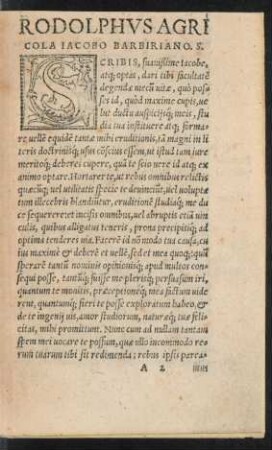 RODOLPHVS AGRI
COLA IACOBO BARBIRIANO. S.
SCRIBIS, suauissime Iacobe,
atq; optas, dari tibi facultatē
degendæ mecū uitæ, quò possis
id, quod maxime cupis, uel
ductu auspicijsq; meis, studia
tua instituere atq; formare,
uelle equidē tantæ mihi eruditionis, tā magni in literis
doctrinæq; usus cōscius essem, ut istud tam iure
meritoq; deberes cupere, quà te scio uere id atq; ex
animo optare. Hortarer te, ut rebus omnibus relictis
quæcūq; uel utilitatis specie te deuinciūt, uel uoluptatum
illecebris blandiūtur, eruditionē studiaq;, me duce
sequerere: et incisis omnibus, uel abruptis etiā uinculis,
quibus alligatus teneris, prona præcipitiq; ad
optima tenderes uia. Facerē id nō modo tua causa, cuius
maximè & deberē et uellē, sed et mea quoq;: quā
sperarē tantū nominis opinionisq; apud multos consequi
posse, tantāq; fuisse me pleritq; persuasum iri,
quantum te monitis, præceptionēq; mea factum uiderent,
quantumq; fieri te posse exploratum habeo, &
de te ingenij uis, amor studiorum, naturæq; tuæ felicitas,
mihi promittunt. Nunc cum ad nullam tantam
spem mei uocare te possum, qua ullo incommodo rerum
tuarum tibi sit redimenda: rebus ipsis parca-
A 2